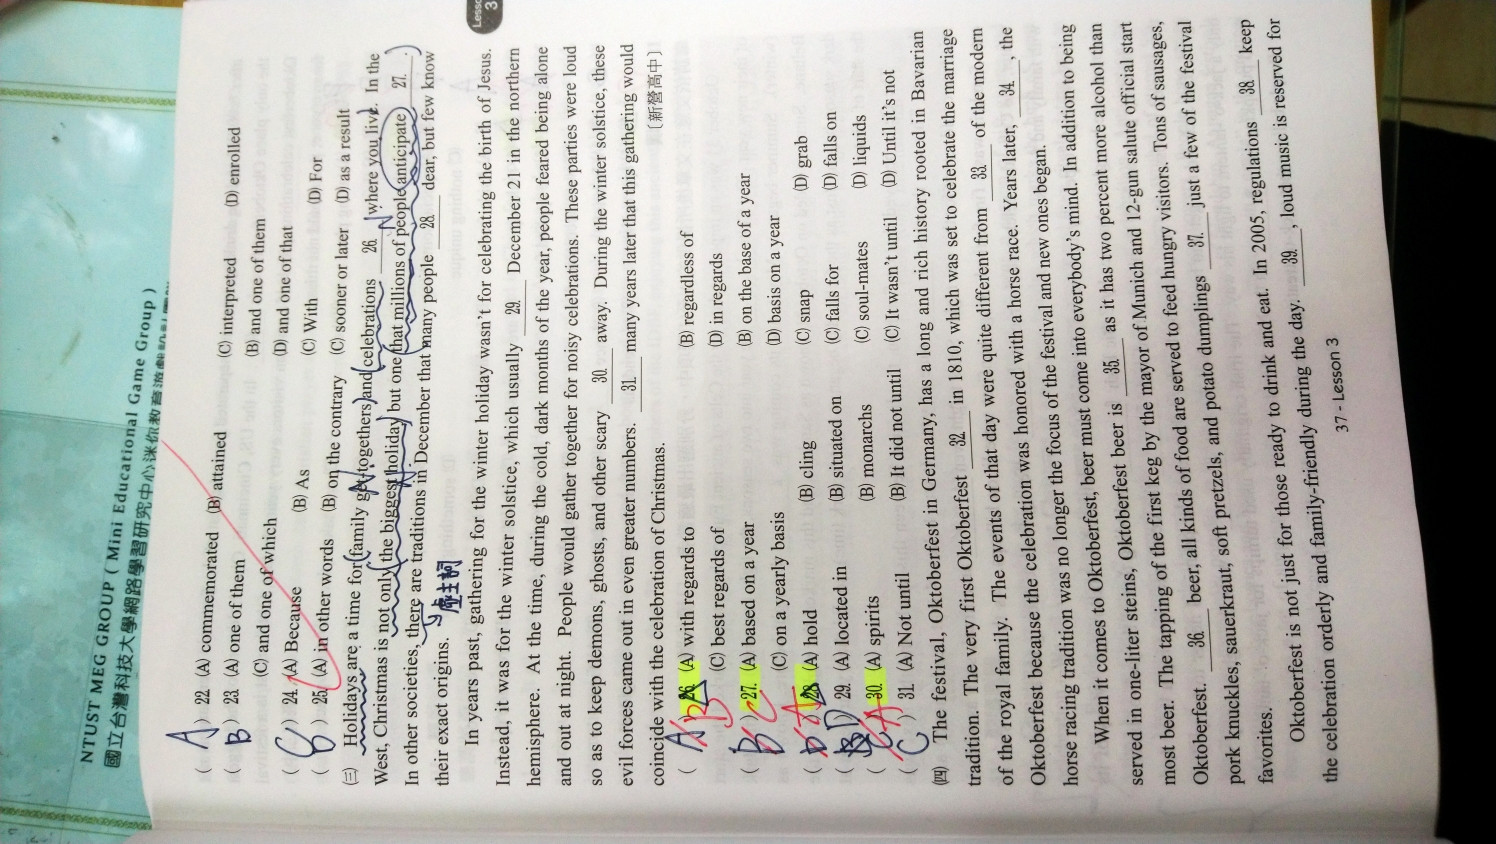 NTUST MEG GROUP ( Mini Educational Game Group )
國立台灣科技大學網路學習研究中心迷你教育遊戲設計團隊
( A ) 22. (A) commemorated (B) attained (C) interpreted (D) enrolled
( B ) 23. (A) one of them (B) and one of them
(C) and one of which (D) and one of that
( C ) 24. (A) Because (B) As (C) With (D) For
( ) 25. (A) in other words (B) on the contrary (C) sooner or later (D) as a result
㈢ Holidays are a time for family get-togethers and celebrations 26. where you live. In the
West, Christmas is not only the biggest holiday but one that millions of people anticipate 27. .
In other societies, there are traditions in December that many people 28. dear, but few know
their exact origins. 虛主詞
In years past, gathering for the winter holiday wasn't for celebrating the birth of Jesus.
Instead, it was for the winter solstice, which usually 29. December 21 in the northern
hemisphere. At the time, during the cold, dark months of the year, people feared being alone
and out at night. People would gather together for noisy celebrations. These parties were loud
so as to keep demons, ghosts, and other scary 30. away. During the winter solstice, these
evil forces came out in even greater numbers. 31. many years later that this gathering would
coincide with the celebration of Christmas. 〔新營高中〕
( A B ) 26. (A) with regards to (B) regardless of
(C) best regards of (D) in regards
( B C ) 27. (A) based on a year (B) on the base of a year
(C) on a yearly basis (D) basis on a year
( D A ) 28. (A) hold (B) cling (C) snap (D) grab
( D ) 29. (A) located in (B) situated on (C) falls for (D) falls on
( C A ) 30. (A) spirits (B) monarchs (C) soul-mates (D) liquids
( C ) 31. (A) Not until (B) It did not until (C) It wasn't until (D) Until it's not
㈣ The festival, Oktoberfest in Germany, has a long and rich history rooted in Bavarian
tradition. The very first Oktoberfest 32. in 1810, which was set to celebrate the marriage
of the royal family. The events of that day were quite different from 33. of the modern
Oktoberfest because the celebration was honored with a horse race. Years later, 34. , the
horse racing tradition was no longer the focus of the festival and new ones began.
When it comes to Oktoberfest, beer must come into everybody's mind. In addition to being
served in one-liter steins, Oktoberfest beer is 35. as it has two percent more alcohol than
most beer. The tapping of the first keg by the mayor of Munich and 12-gun salute official start
Oktoberfest. 36. beer, all kinds of food are served to feed hungry visitors. Tons of sausages,
pork knuckles, sauerkraut, soft pretzels, and potato dumplings 37. just a few of the festival
favorites.
Oktoberfest is not just for those ready to drink and eat. In 2005, regulations 38. keep
the celebration orderly and family-friendly during the day. 39. , loud music is reserved for
37 - Lesson 3
Lesson
3